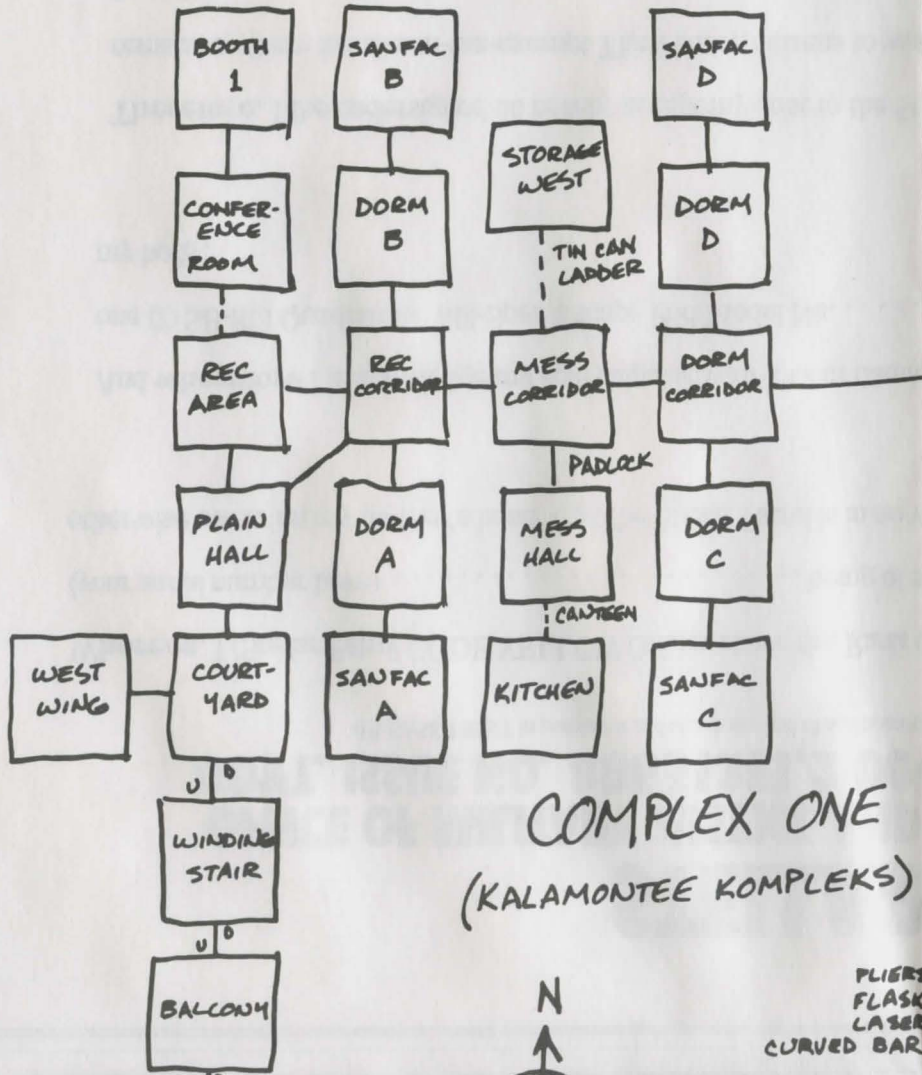 BOOTH
1
SANFAC
B
SANFAC
D
STORAGE
WEST
CONFER-
ENCE
ROOM
DORM
B
DORM
D
TIN CAN
LADDER
REC
AREA
REC
CORRIDOR
MESS
CORRIDOR
DORM
CORRIDOR
PADLOCK
PLAIN
HALL
DORM
A
MESS
HALL
DORM
C
CANTEEN
WEST
WING
COURT-
YARD
SANFAC
A
KITCHEN
SANFAC
C
U D
WINDING
STAIR
COMPLEX ONE
(KALAMONTEE KOMPLEKS)
U D
BALCONY
N
PLIERS
FLASK
LASER
CURVED BAR